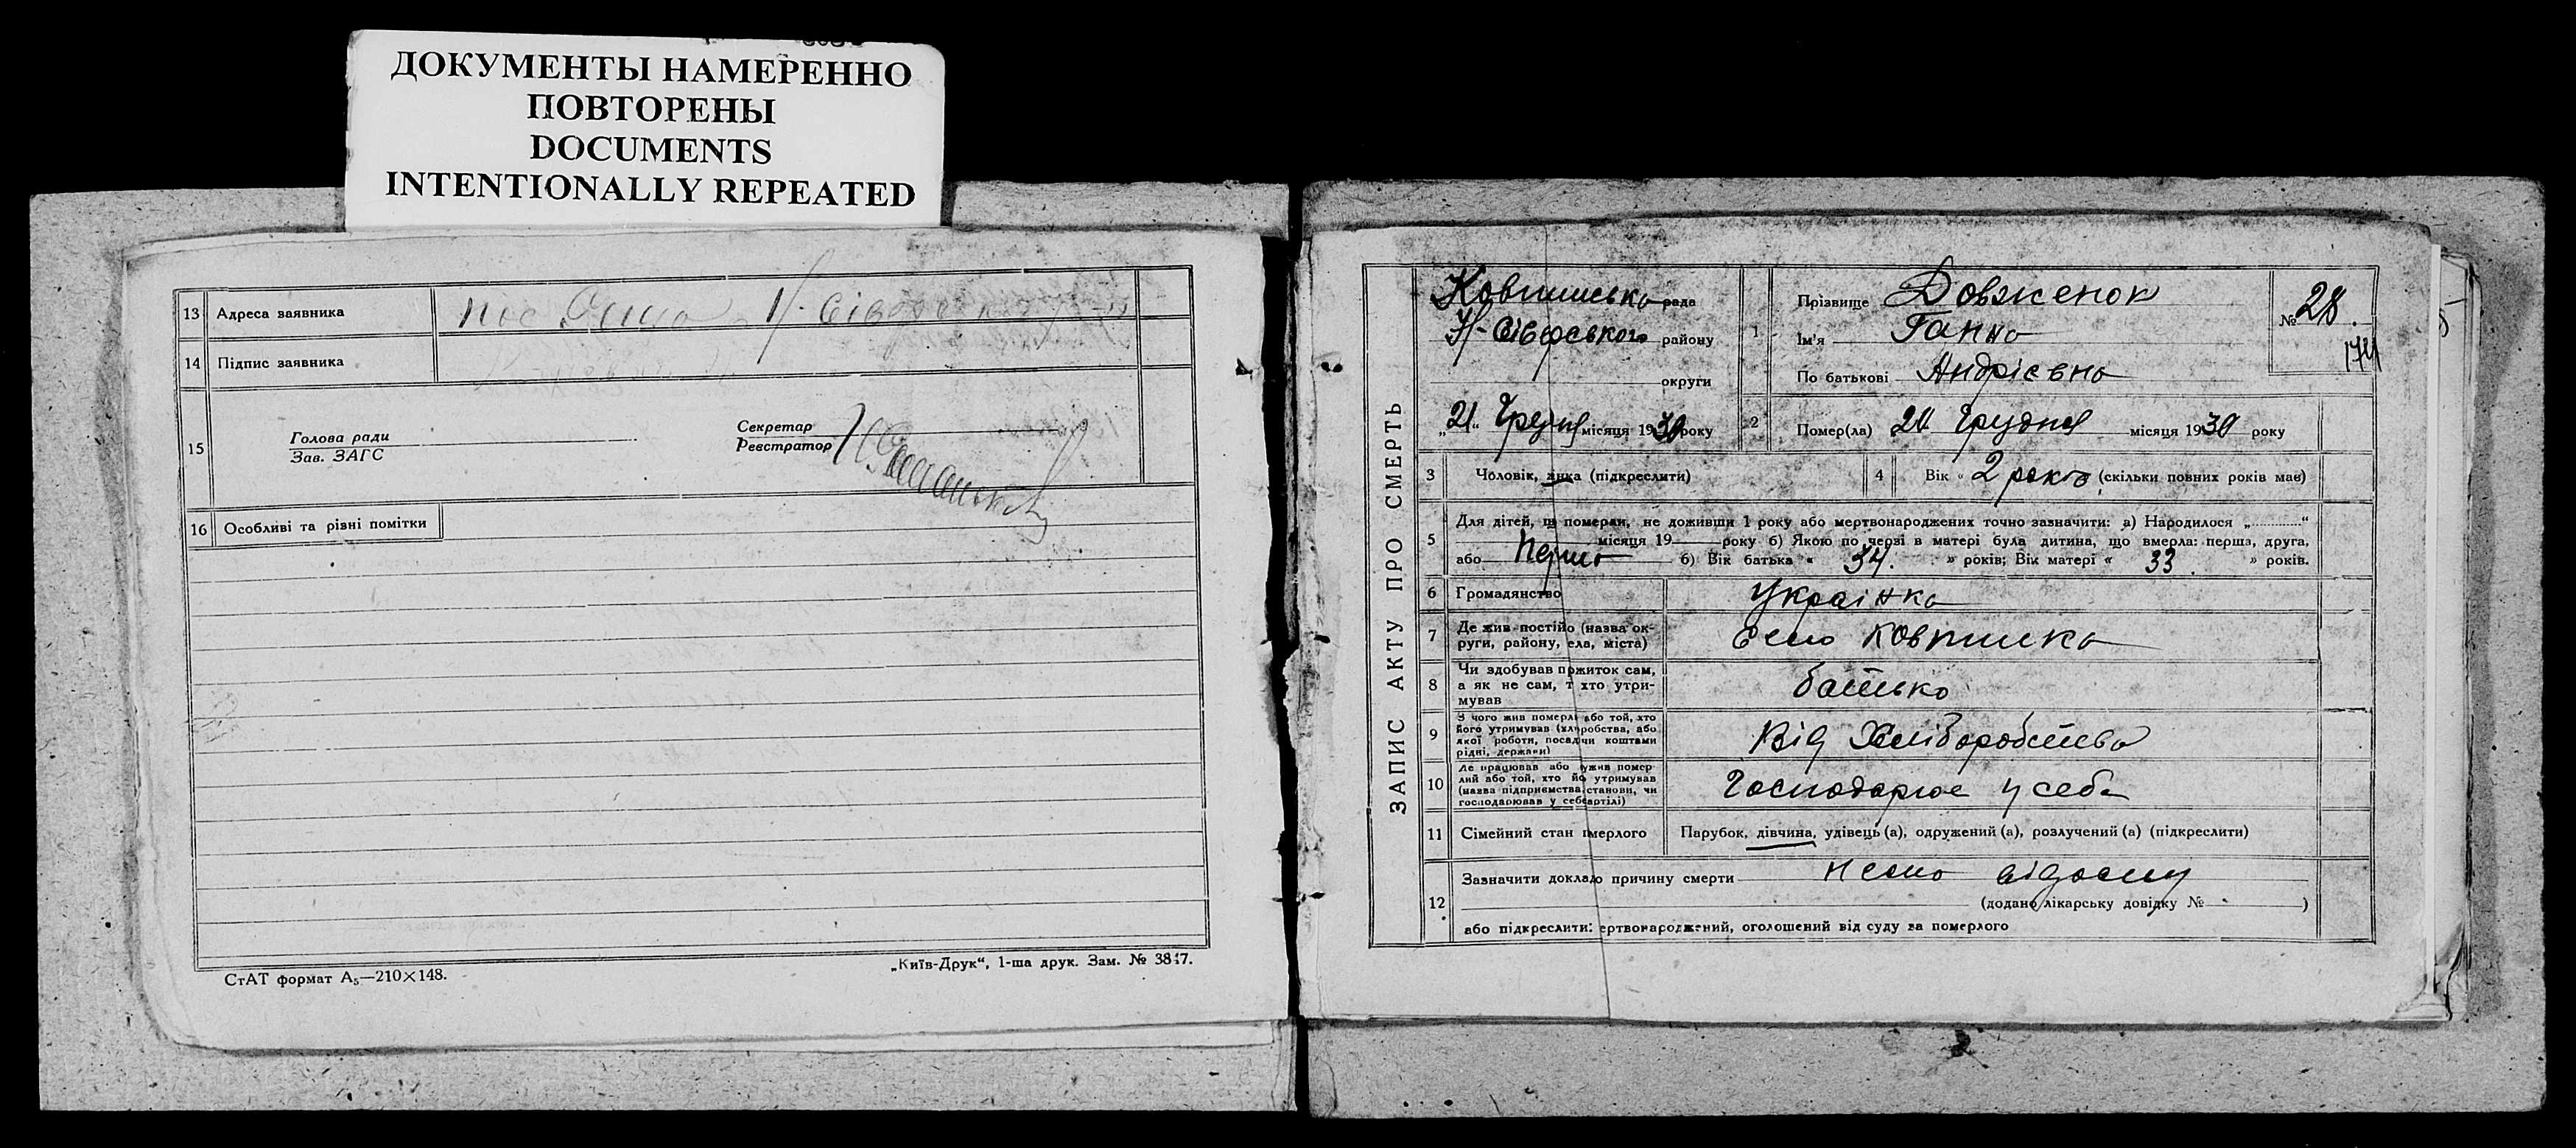 ДОКУМЕНТЫ НАМЕРЕННО
ПОВТОРЕНЫ
DOCUMENTS
INTENTIONALLY REPEATED
13 Адреса заявника
14 Підпис заявника
15 Голова ради
Зав. ЗАГС
Секретар
Реєстратор
16 Особливі та різні помітки
СтАТ формат А₅—210×148.
„Київ-Друк“, 1-ша друк. Зам. № 3847.
ЗАПИС АКТУ ПРО СМЕРТЬ
Ковпинська рада
Н-Сіверського району
округи
„21“ Грудня місяця 1930 року
1 Прізвище Довженок
Ім'я Ганна
По батькові Андрієвна
№ 28.
174
2 Помер(ла) 21 Грудня місяця 1930 року
3 Чоловік, жінка (підкреслити)
4 Вік « 2 роки (скільки повних років має)
5 Для дітей, що померли, не доживши 1 року або мертвонароджених точно зазначити: а) Народилося „ “
місяця 19 року б) Якою по черзі в матері була дитина, що вмерла: перша, друга,
або перша б) Вік батька « 34. » років; Вік матері « 33. » років.
6 Громадянство Українка
7 Де жив постійно (назва округи, району, села, міста) Село Ковпинка
8 Чи здобував прожиток сам,
а як не сам, то хто утримував батько
9 З чого жив померлий або той, хто
його утримував Від Хліборобства
10 Де працював або служив померлий або той, хто його утримував
Господарює у себе
11 Сімейний стан померлого Парубок, дівчина, удівець (а), одружений (а), розлучений (а) (підкреслити)
12 Зазначити докладно причину смерти
(додано лікарську довідку № )
або підкреслити: мертвонароджений, оголошений від суду за померлого